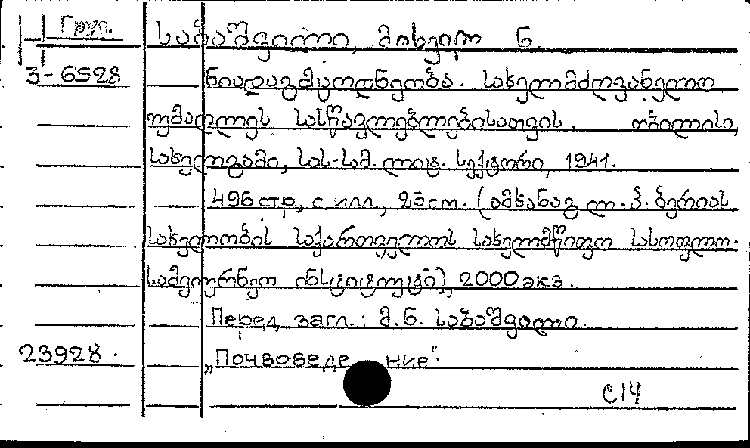 Груз.
საბაშვილი, მიხეილ ნ.
3-6528
ნიადაგმცოდნეობა. სახელმძღვანელო
უმაღლეს სასწავლებლებისათვის. თბილისი,
სახელგამი, სას.-სამ. ლიტ. სექტორი, 1941.
496 стр., с илл., 23 см. (ამხანაგ ლ. პ. ბერიას
სახელობის საქართველოს სახელმწიფო სასოფლო-
სამეურნეო ინსტიტუტი) 2000 экз.
Перед загл.: მ. ნ. საბაშვილი.
23928.
„Почвоведение".
C14